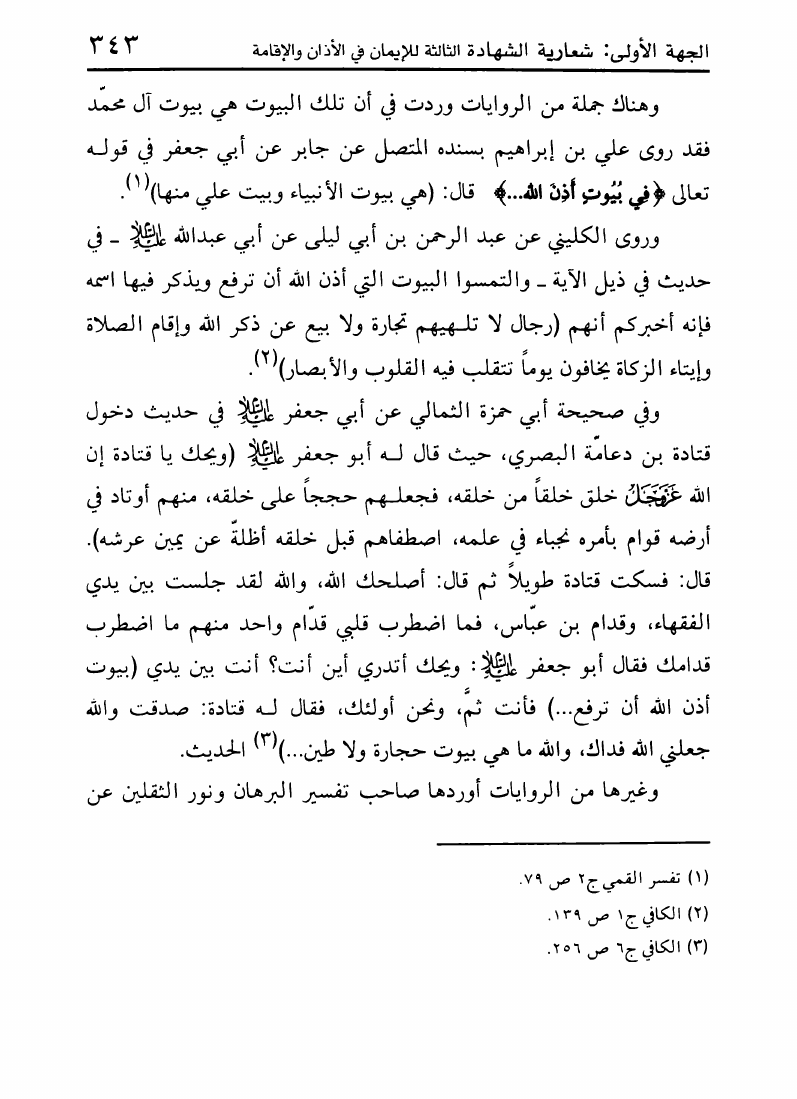 الجهة الأولى: شعارية الشهادة الثالثة للإيمان في الأذان والإقامة ٣٤٣
وهناك جملة من الروايات وردت في أن تلك البيوت هي بيوت آل محمّد
فقد روى علي بن إبراهيم بسنده المتصل عن جابر عن أبي جعفر في قوله
تعالى ﴿فِي بُيُوتٍ أَذِنَ الله...﴾ قال: (هي بيوت الأنبياء وبيت علي منها)(١).
وروى الكليني عن عبد الرحمن بن أبي ليلى عن أبي عبدالله عليه السلام ـ في
حديث في ذيل الآية ـ والتمسوا البيوت التي أذن الله أن ترفع ويذكر فيها اسمه
فإنه أخبركم أنهم (رجال لا تلهيهم تجارة ولا بيع عن ذكر الله وإقام الصلاة
وإيتاء الزكاة يخافون يوماً تتقلب فيه القلوب والأبصار)(٢).
وفي صحيحة أبي حمزة الثمالي عن أبي جعفر عليه السلام في حديث دخول
قتادة بن دعامّة البصري، حيث قال له أبو جعفر عليه السلام (ويحك يا قتادة إن
الله عَزَّوَجَلَّ خلق خلقاً من خلقه، فجعلهم حججاً على خلقه، منهم أوتاد في
أرضه قوام بأمره نجباء في علمه، اصطفاهم قبل خلقه أظلّة عن يمين عرشه).
قال: فسكت قتادة طويلاً ثم قال: أصلحك الله، والله لقد جلست بين يدي
الفقهاء، وقدام بن عبّاس، فما اضطرب قلبي قدّام واحد منهم ما اضطرب
قدامك فقال أبو جعفر عليه السلام: ويحك أتدري أين أنت؟ أنت بين يدي (بيوت
أذن الله أن ترفع...) فأنت ثَمَّ، ونحن أولئك، فقال له قتادة: صدقت والله
جعلني الله فداك، والله ما هي بيوت حجارة ولا طين...)(٣) الحديث.
وغيرها من الروايات أوردها صاحب تفسير البرهان ونور الثقلين عن
(١) تفسر القمي ج٢ ص ٧٩.
(٢) الكافي ج١ ص ١٣٩.
(٣) الكافي ج٦ ص ٢٥٦.